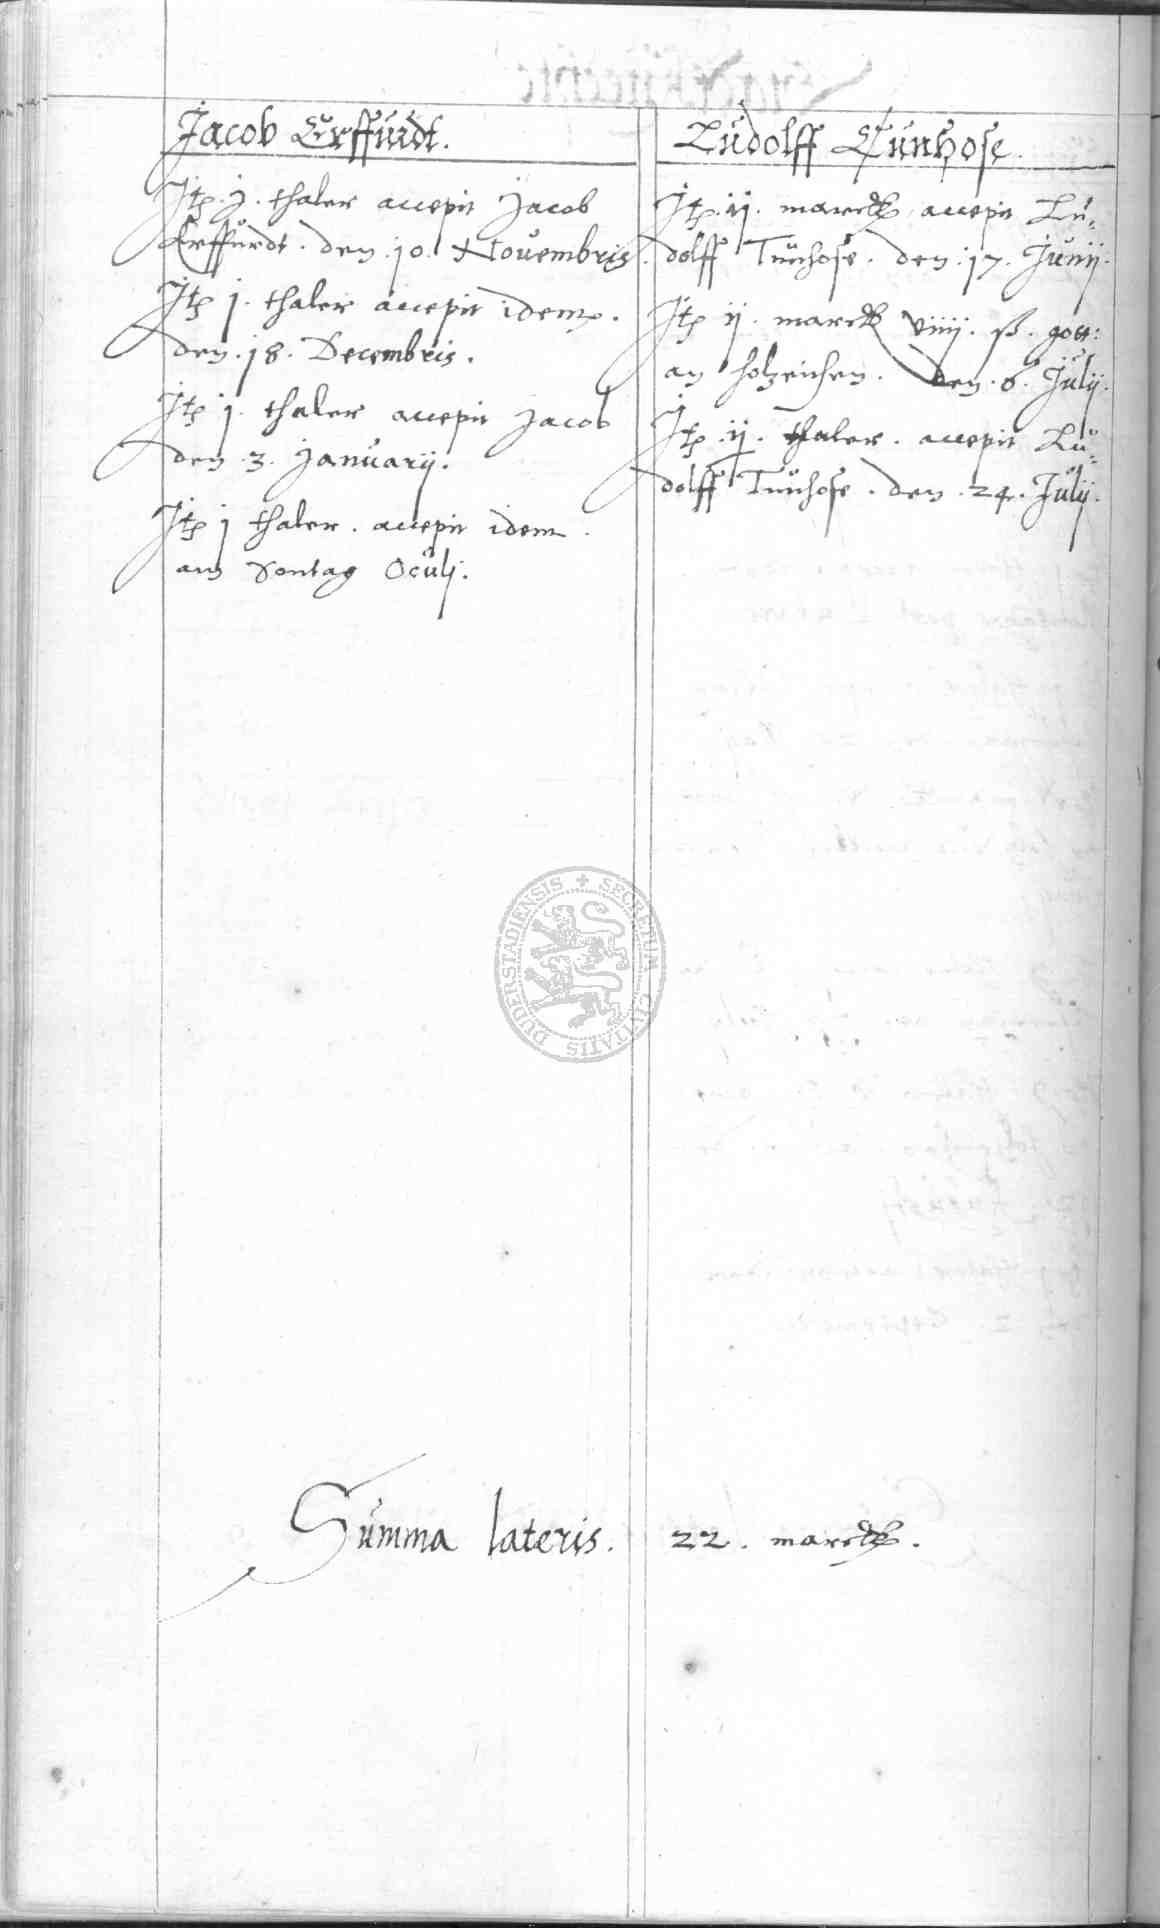 Jacob Erffurdt.
Itē. j. thaler accepit Jacob
Erffurdt. den. 10. Novembris.
Itē j. thaler accepit idem.
den. 18. Decembris.
Itē j. thaler accepit Jacob
den. 3. Januarij.
Itē j thaler. accepit idem.
am Sontag Oculj.
Ludolff Tunhose.
Itē. ij. marck accepit Lu-
dolff Tunhose. den. 17. Junij.
Itē ij. marck viiij. ß. gott:
an holzeichen. den. 6. Julij.
Itē. ij. thaler. accepit Lu-
dolff Tunhose. den. 24. Julij.
SECRETUM CIVITATIS DUDERSTADIENSIS
Summa lateris. 22. marck.